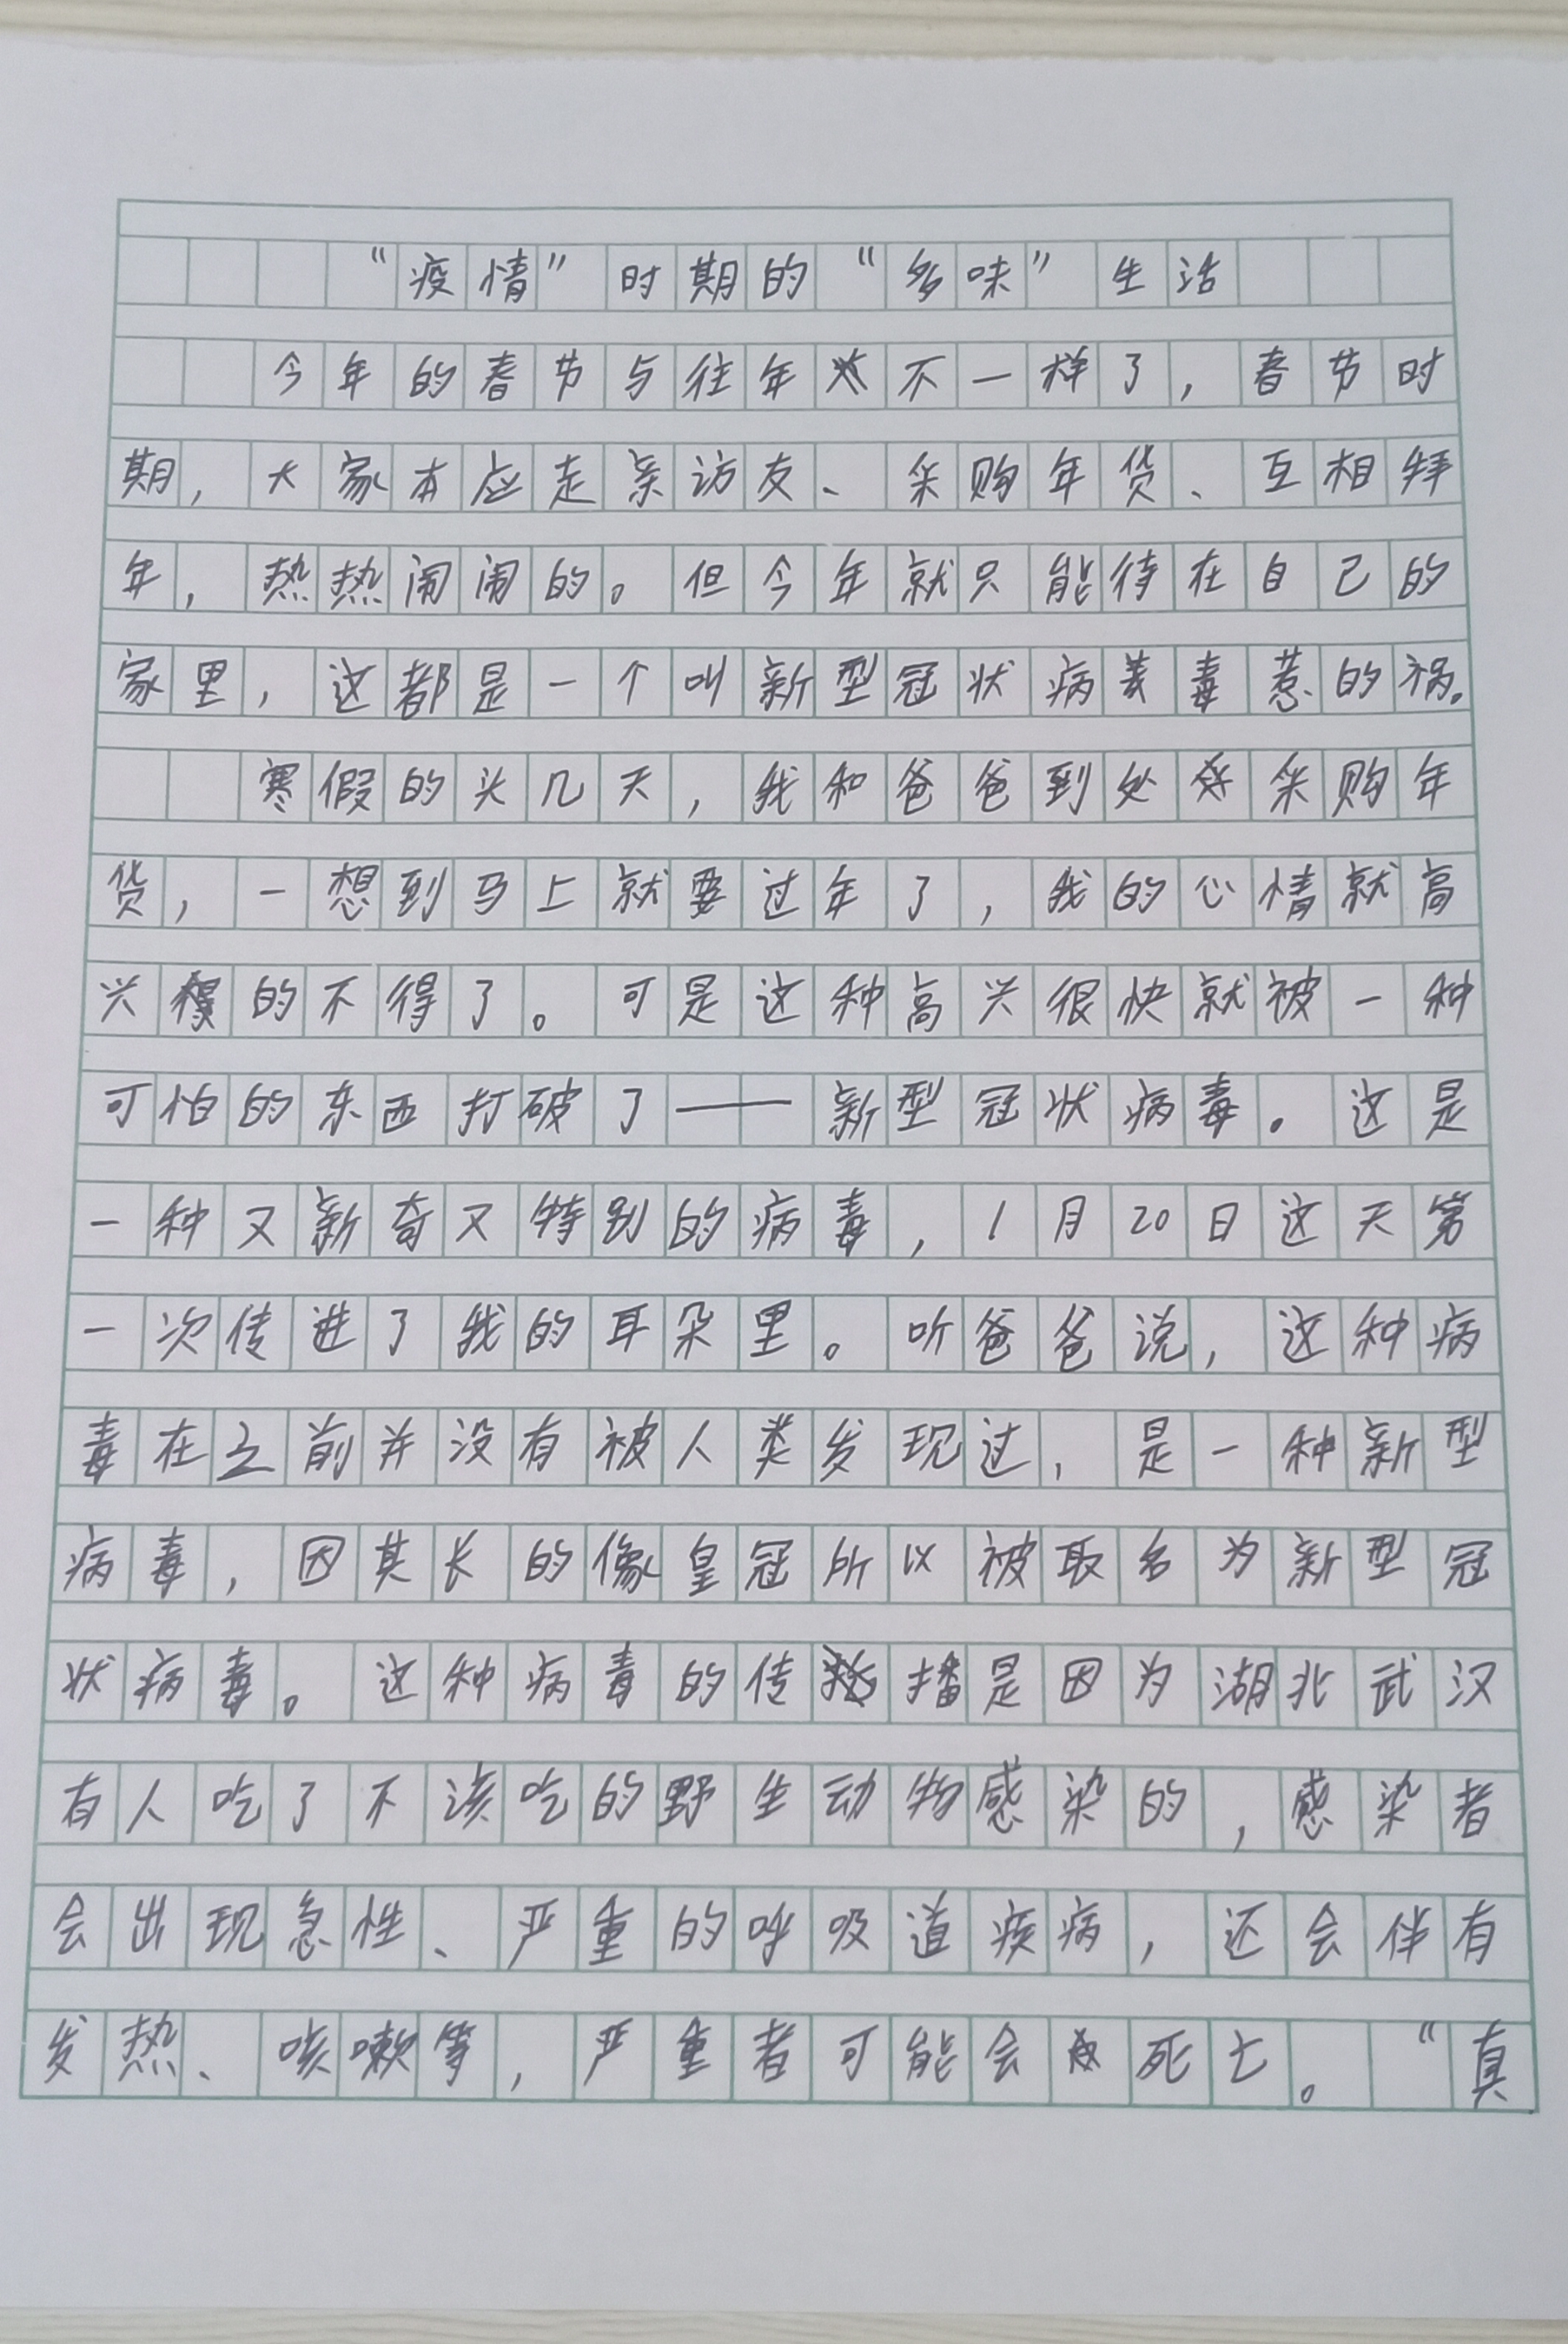 “疫情”时期的“多味”生活
今年的春节与往年不一样了，春节时
期，大家本应走亲访友、采购年货、互相拜
年，热热闹闹的。但今年就只能待在自己的
家里，这都是一个叫新型冠状病毒惹的祸。
寒假的头几天，我和爸爸到处采购年
货，一想到马上就要过年了，我的心情就高
兴的不得了。可是这种高兴很快就被一种
可怕的东西打破了——新型冠状病毒。这是
一种又新奇又特别的病毒，1月20日这天第
一次传进了我的耳朵里。听爸爸说，这种病
毒在之前并没有被人类发现过，是一种新型
病毒，因其长的像皇冠所以被取名为新型冠
状病毒。这种病毒的传播是因为湖北武汉
有人吃了不该吃的野生动物感染的，感染者
会出现急性、严重的呼吸道疾病，还会伴有
发热、咳嗽等，严重者可能会死亡。“真